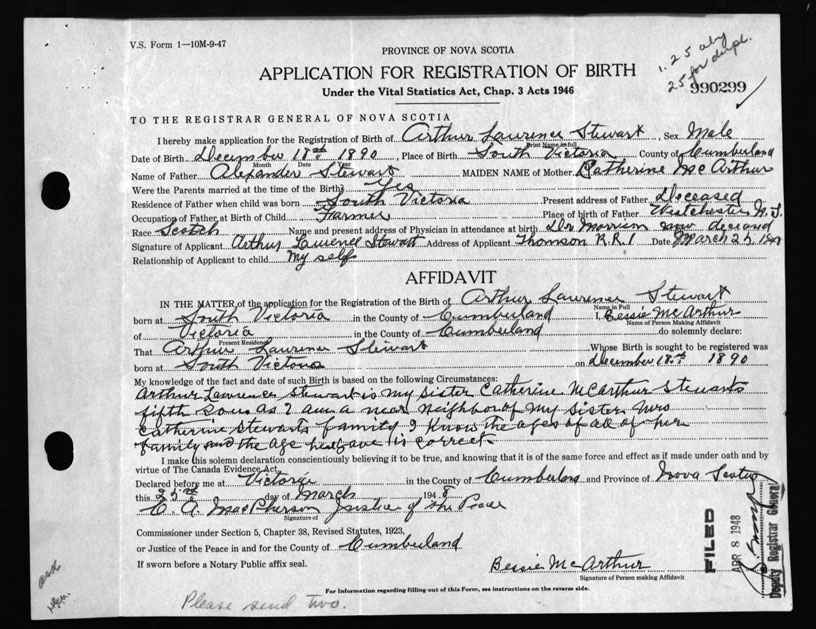 V.S. Form 1—10M-9-47
PROVINCE OF NOVA SCOTIA
1.25 abg
25 for dupl.
APPLICATION FOR REGISTRATION OF BIRTH
990299
Under the Vital Statistics Act, Chap. 3 Acts 1946
TO THE REGISTRAR GENERAL OF NOVA SCOTIA
I hereby make application for the Registration of Birth of Arthur Lawrence Stewart, Sex Male
Print Name in full
Date of Birth December 18th 1890, Place of Birth South Victoria County of Cumberland
Month Date Year
Name of Father Alexander Stewart MAIDEN NAME of Mother Catherine McArthur
Were the Parents married at time of the Birth? Yes
Residence of Father when child was born South Victoria Present address of Father Deceased
Occupation of Father at Birth of Child Farmer Place of birth of Father Westchester N.S.
Race Scotch Name and present address of Physician in attendance at birth Dr. Morrison now deceased
Signature of Applicant Arthur Lawrence Stewart Address of Applicant Thomson R.R.1 Date March 25, 1948
Relationship of Applicant to child My self
AFFIDAVIT
IN THE MATTER of the application for the Registration of the Birth of Arthur Lawrence Stewart
Name in Full
born at South Victoria in the County of Cumberland I, Bessie McArthur
Name of Person Making Affidavit
of Victoria in the County of Cumberland do solemnly declare:
Present Residence
That Arthur Lawrence Stewart Whose Birth is sought to be registered was
born at South Victoria on December 18th 1890
My knowledge of the fact and date of such Birth is based on the following Circumstances:
Arthur Lawrence Stewart is my sister Catherine McArthur Stewarts
fifth son. as I am a near neighbor of my sister Mrs
Catherine Stewarts family I know the ages of all of her
family and the age he gave is correct
I make this solemn declaration conscientiously believing it to be true, and knowing that it is of the same force and effect as if made under oath and by
virtue of The Canada Evidence Act.
Declared before me at Victoria in the County of Cumberland and Province of Nova Scotia
this 25th day of March 1948
C. A. MacPherson Justice of the Peace
Signature of
Commissioner under Section 5, Chapter 38, Revised Statutes, 1923,
or Justice of the Peace in and for the County of Cumberland
If sworn before a Notary Public affix seal.
Bessie McArthur
Signature of Person making Affidavit
FILED
APR 8 1948
Deputy Registrar General
For Information regarding filling out of this Form, see instructions on the reverse side.
Please send two.